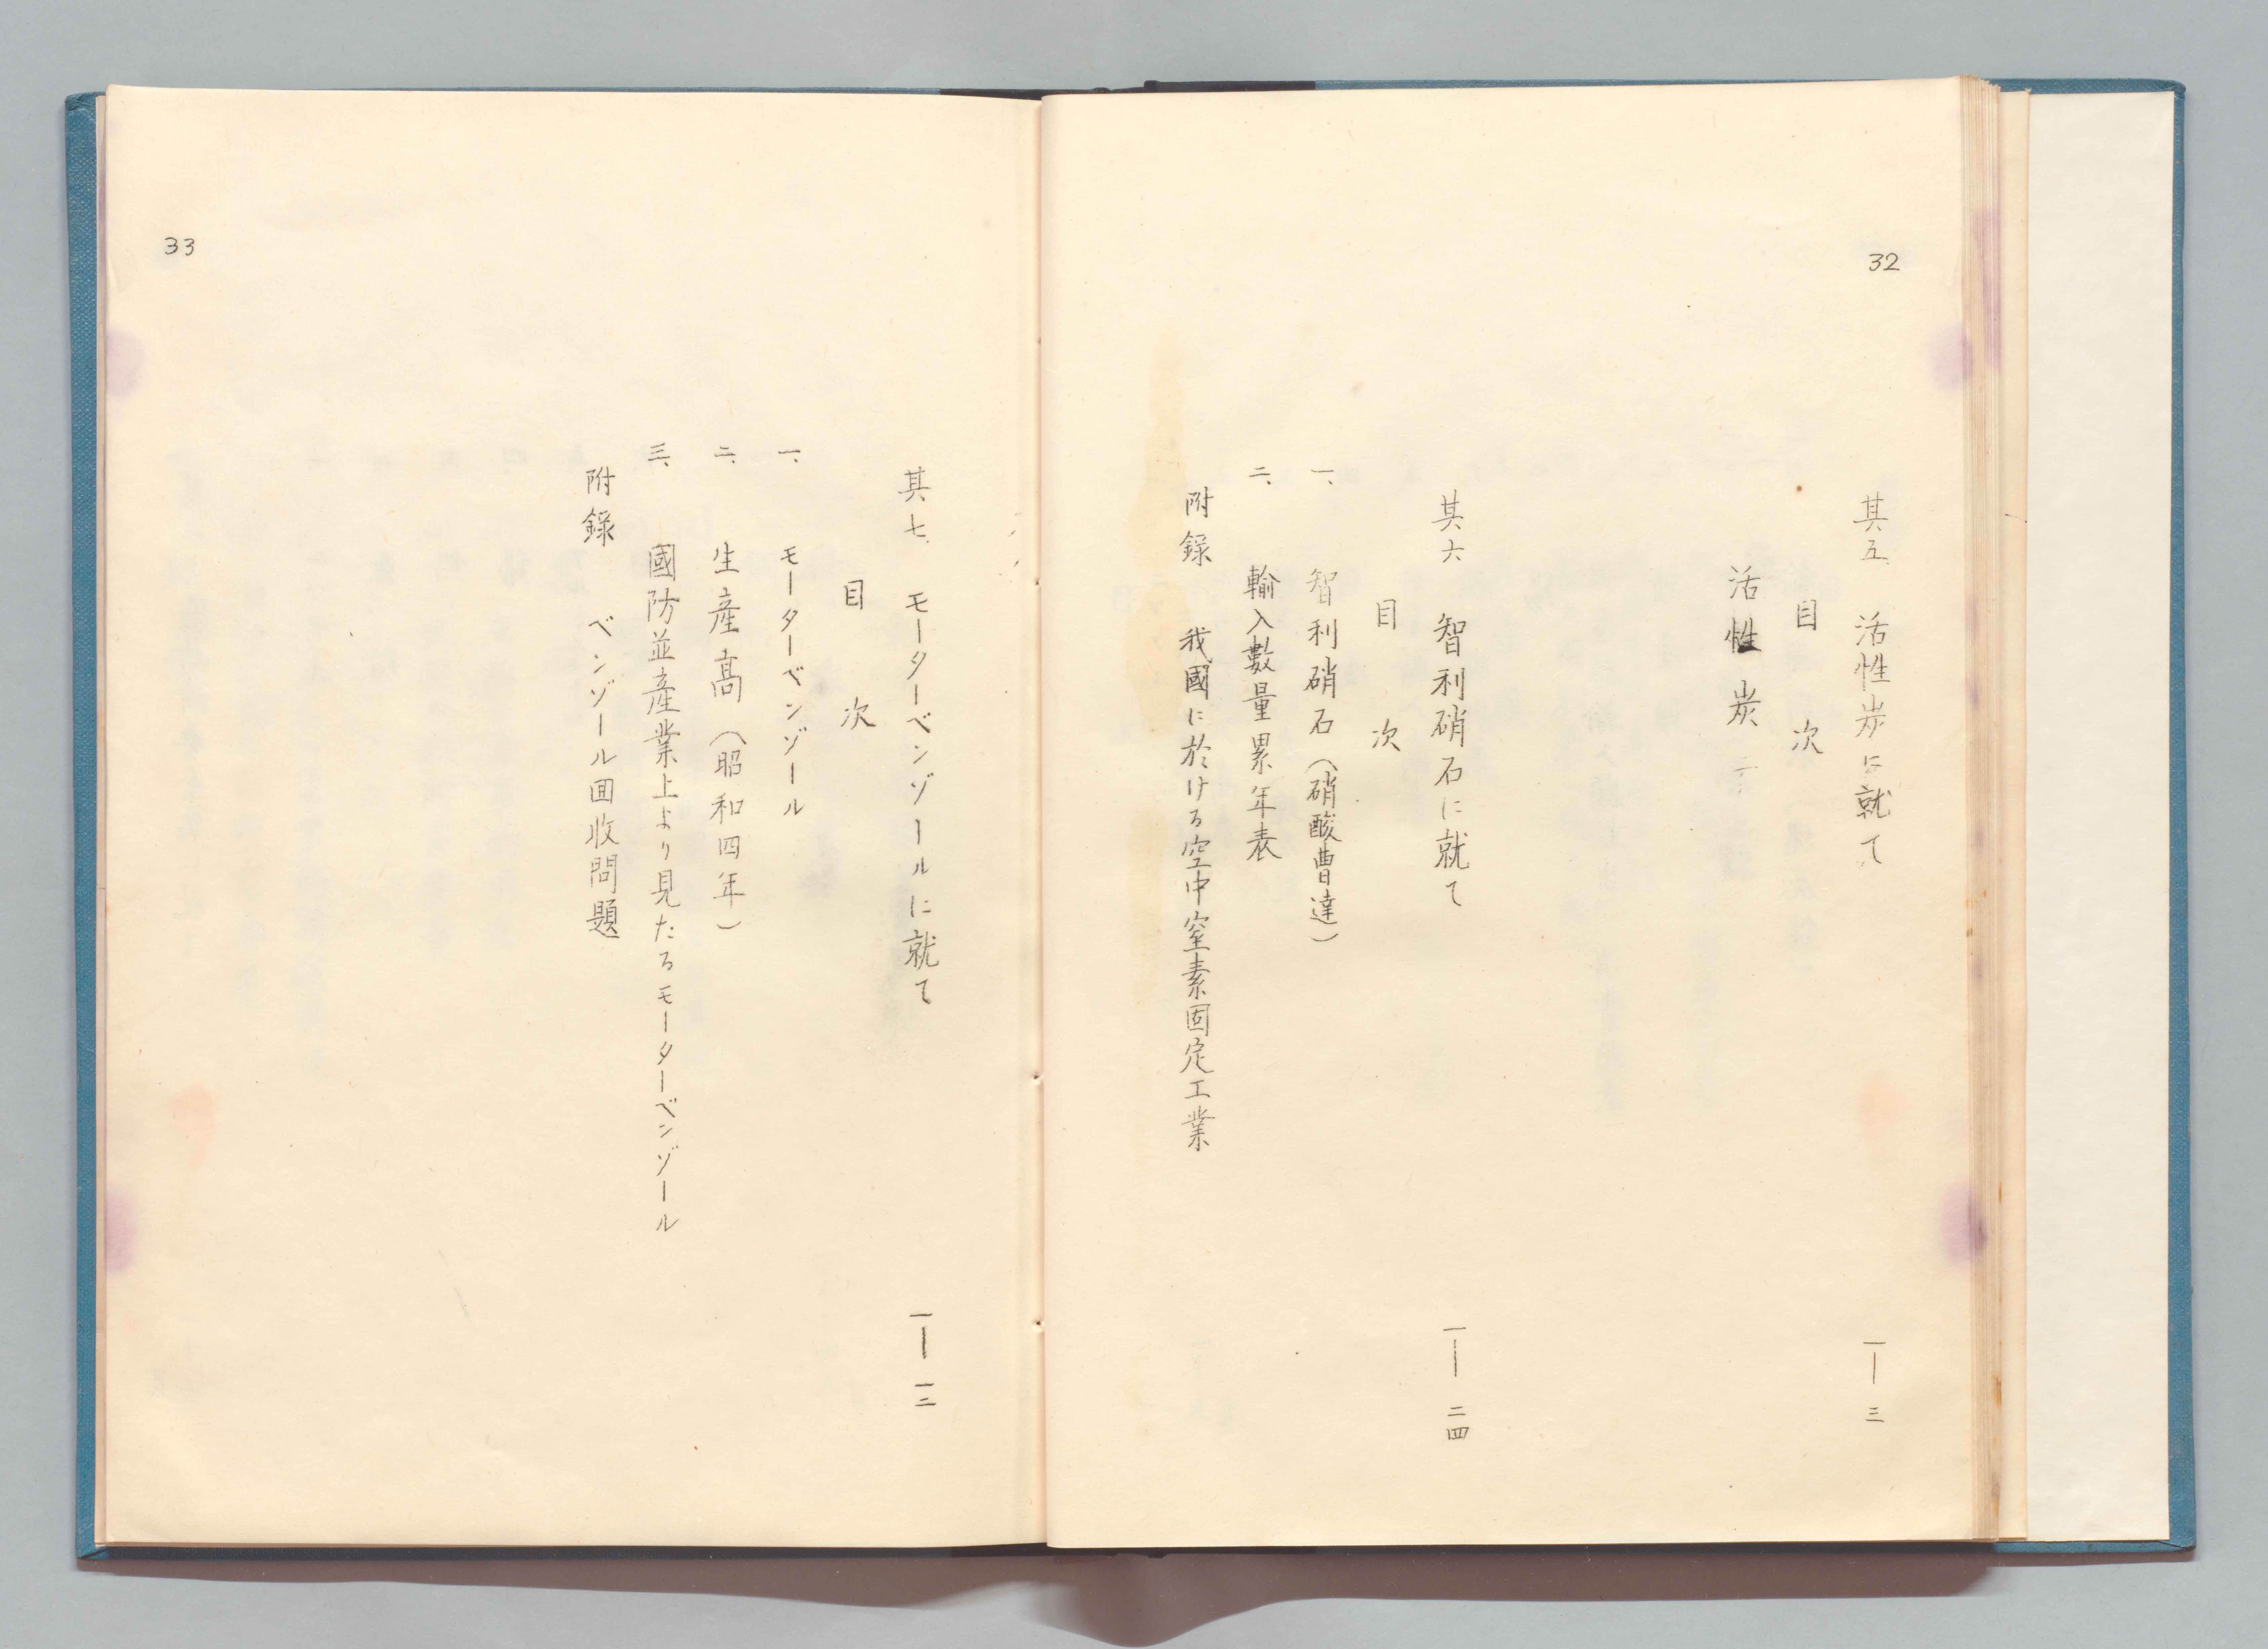 32
其五、活性炭に就て 一―三
目次
活性炭
其六 智利硝石に就て 一―二四
目次
一、智利硝石（硝酸曹達）
二、輸入數量累年表
附錄 我國に於ける空中窒素固定工業
33
其七、モーターベンゾールに就て 一―一二
目次
一、モーターベンゾール
二、生産高（昭和四年）
三、國防並産業上より見たるモーターベンゾール
附錄 ベンゾール囬收問題